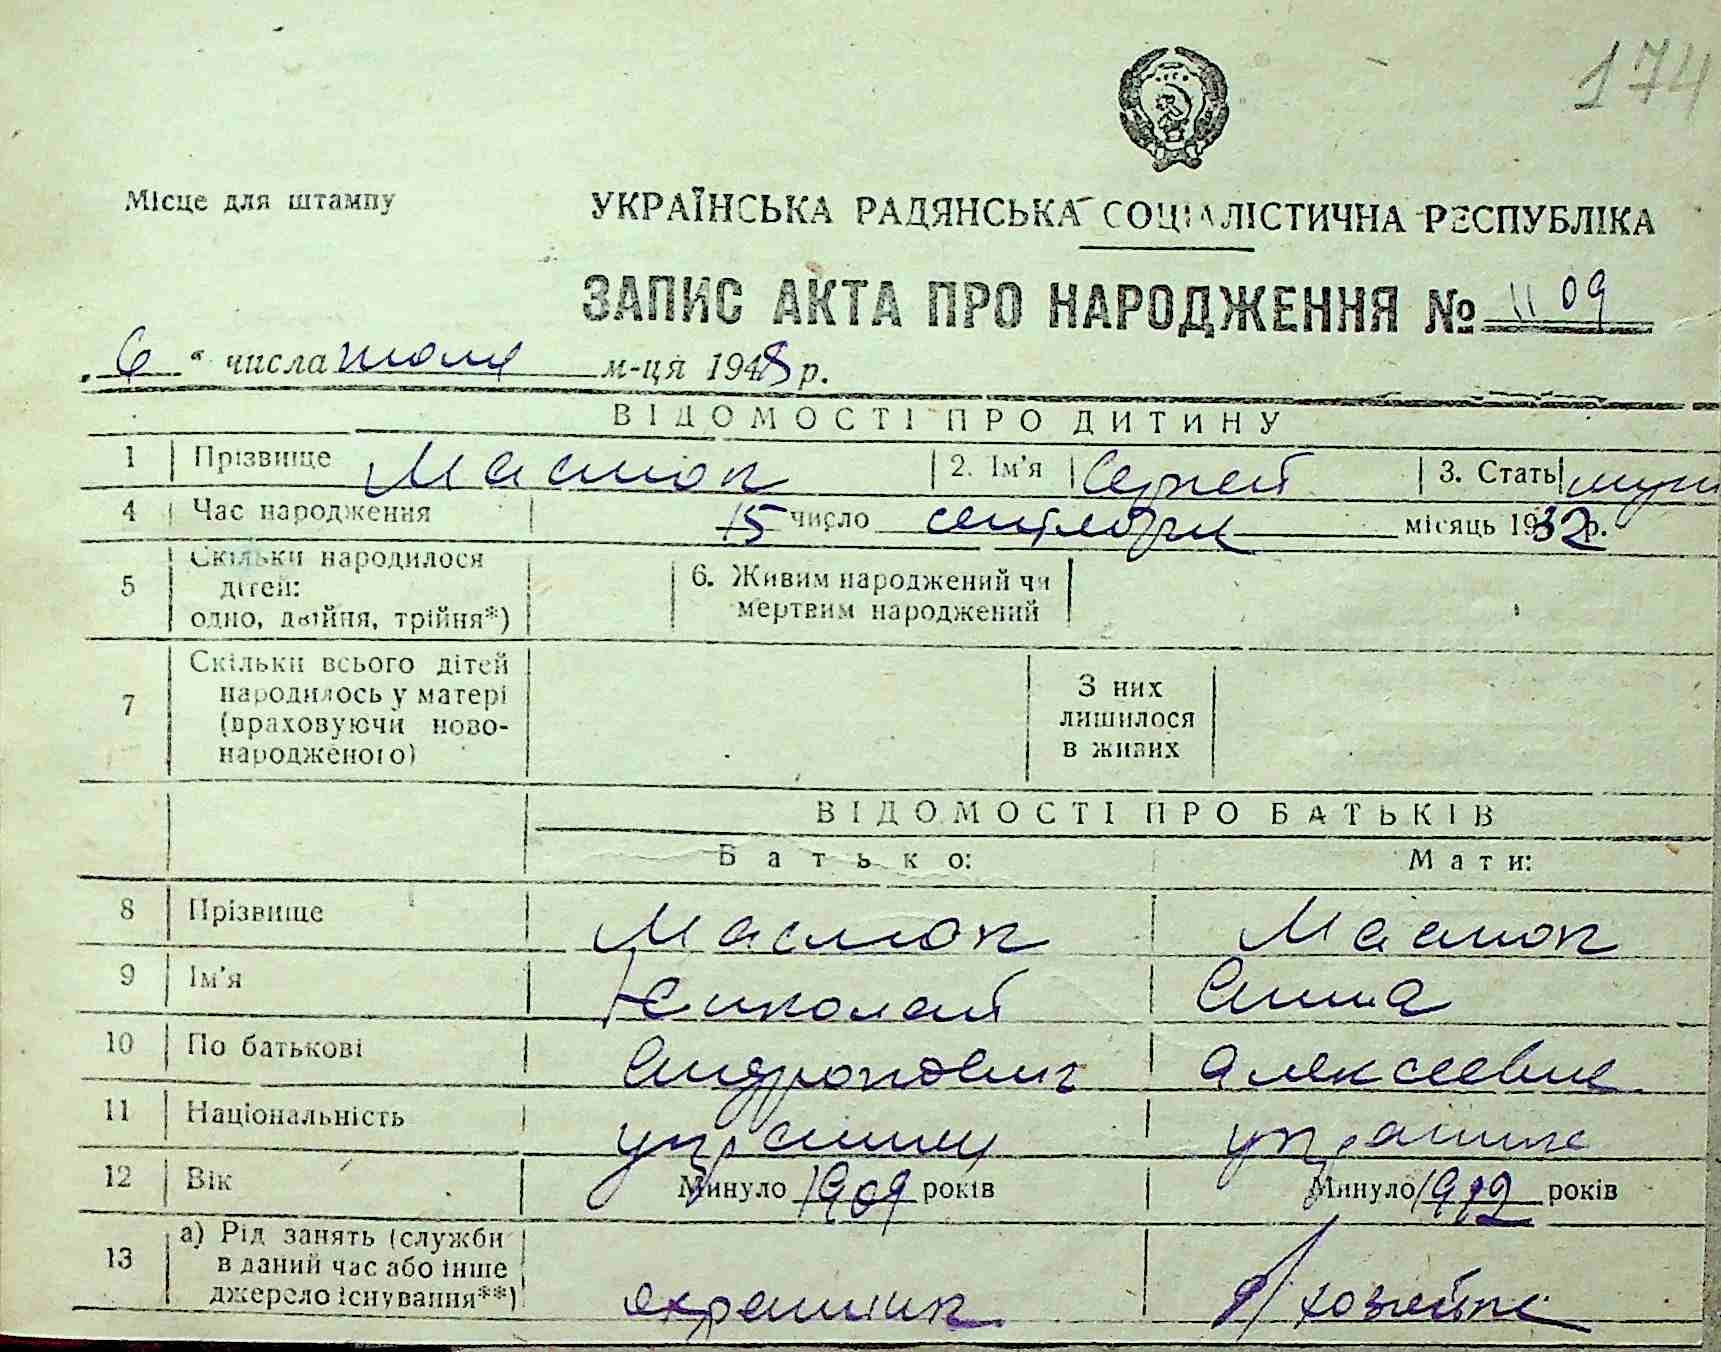 174
Місце для штампу
УКРАЇНСЬКА РАДЯНСЬКА СОЦІАЛІСТИЧНА РЕСПУБЛІКА
ЗАПИС АКТА ПРО НАРОДЖЕННЯ № 1109
„6“ числа июля м-ця 1948 р.
ВІДОМОСТІ ПРО ДИТИНУ
1 Прізвище Маслюк 2. Ім'я Сергей 3. Стать муж
4 Час народження 15 число сентября місяць 1932 р.
5 Скільки народилося дітей: одно, двійня, трійня*) 6. Живим народжений чи мертвим народжений
7 Скільки всього дітей народилось у матері (враховуючи новонародженого) З них лишилося в живих
ВІДОМОСТІ ПРО БАТЬКІВ
Батько: Мати:
8 Прізвище Маслюк Маслюк
9 Ім'я Николай Анна
10 По батькові Андронович Алексеевна
11 Національність украинец украинка
12 Вік Минуло 1909 років Минуло 1912 років
13 а) Рід занять (служби в даний час або інше джерело існування**) охранник д/хозяйка